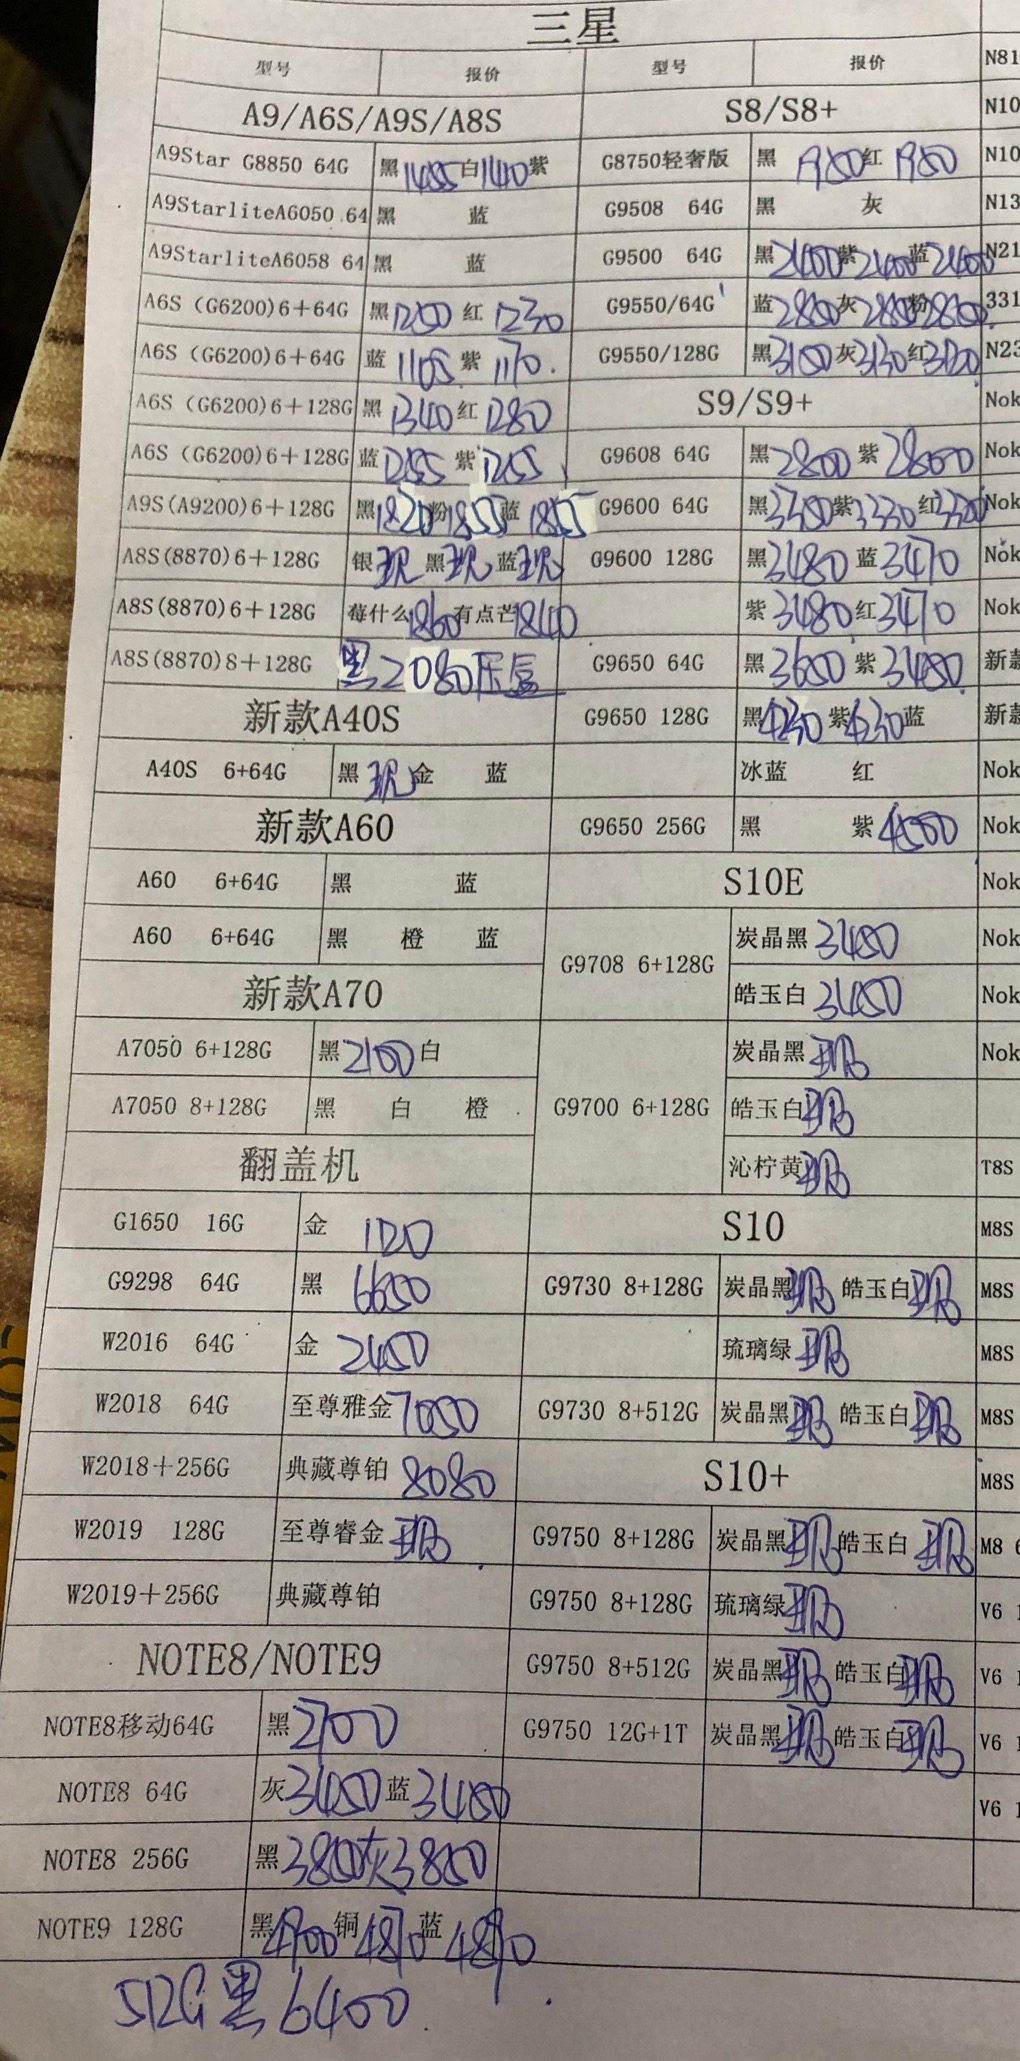 三星
型号 报价 型号 报价 N81
A9/A6S/A9S/A8S S8/S8+ N10
A9Star G8850 64G 黑1455白1410紫 G8750轻奢版 黑 1950红 1950 N10
A9StarliteA6050 64 黑 蓝 G9508 64G 黑 灰 N13
A9StarliteA6058 64 黑 蓝 G9500 64G 黑2400紫2400蓝2400 N21
A6S (G6200)6+64G 黑1200 红 1230 G9550/64G 蓝2800灰2800粉2800 331
A6S (G6200)6+64G 蓝 1105 紫 1170 G9550/128G 黑3100灰3130红3120 N23
A6S (G6200)6+128G 黑 1340红 1280 S9/S9+ Nok
A6S (G6200)6+128G 蓝1255 紫1255 G9608 64G 黑2800 紫 2800 Nok
A9S(A9200)6+128G 黑1820粉1855蓝 1855 G9600 64G 黑 紫3330 红3320 Nok
A8S(8870)6+128G 银现 黑现 蓝现 G9600 128G 黑3480 蓝3470 Nok
A8S(8870)6+128G 莓什么1860有点芒1840 紫 3480红3470 Nok
A8S(8870)8+128G 黑2080压盒 G9650 64G 黑 3600 紫 3480 新款
新款A40S G9650 128G 黑4230 紫4230蓝 新款
A40S 6+64G 黑现金 蓝 冰蓝 红 Nok
新款A60 G9650 256G 黑 紫4500 Nok
A60 6+64G 黑 蓝 S10E Nok
A60 6+64G 黑 橙 蓝 G9708 6+128G 炭晶黑 3450 Nok
新款A70 皓玉白 3450 Nok
A7050 6+128G 黑2100白 炭晶黑现 Nok
A7050 8+128G 黑 白 橙 G9700 6+128G 皓玉白现
翻盖机 沁柠黄现 T8S
G1650 16G 金 1120 S10 M8S
G9298 64G 黑 6650 G9730 8+128G 炭晶黑现 皓玉白现 M8S
W2016 64G 金 2450 琉璃绿现 M8S
W2018 64G 至尊雅金7050 G9730 8+512G 炭晶黑现 皓玉白现 M8S
W2018+256G 典藏尊铂 8080 S10+ M8S
W2019 128G 至尊睿金现 G9750 8+128G 炭晶黑现皓玉白 现 M8 6
W2019+256G 典藏尊铂 G9750 8+128G 琉璃绿现 V6 1
NOTE8/NOTE9 G9750 8+512G 炭晶黑现 皓玉白现 V6 1
NOTE8移动64G 黑2700 G9750 12G+1T 炭晶黑现皓玉白现 V6 1
NOTE8 64G 灰3450蓝3450 V6 1
NOTE8 256G 黑3850灰3850
NOTE9 128G 黑4900铜4870蓝4890
512G黑6400